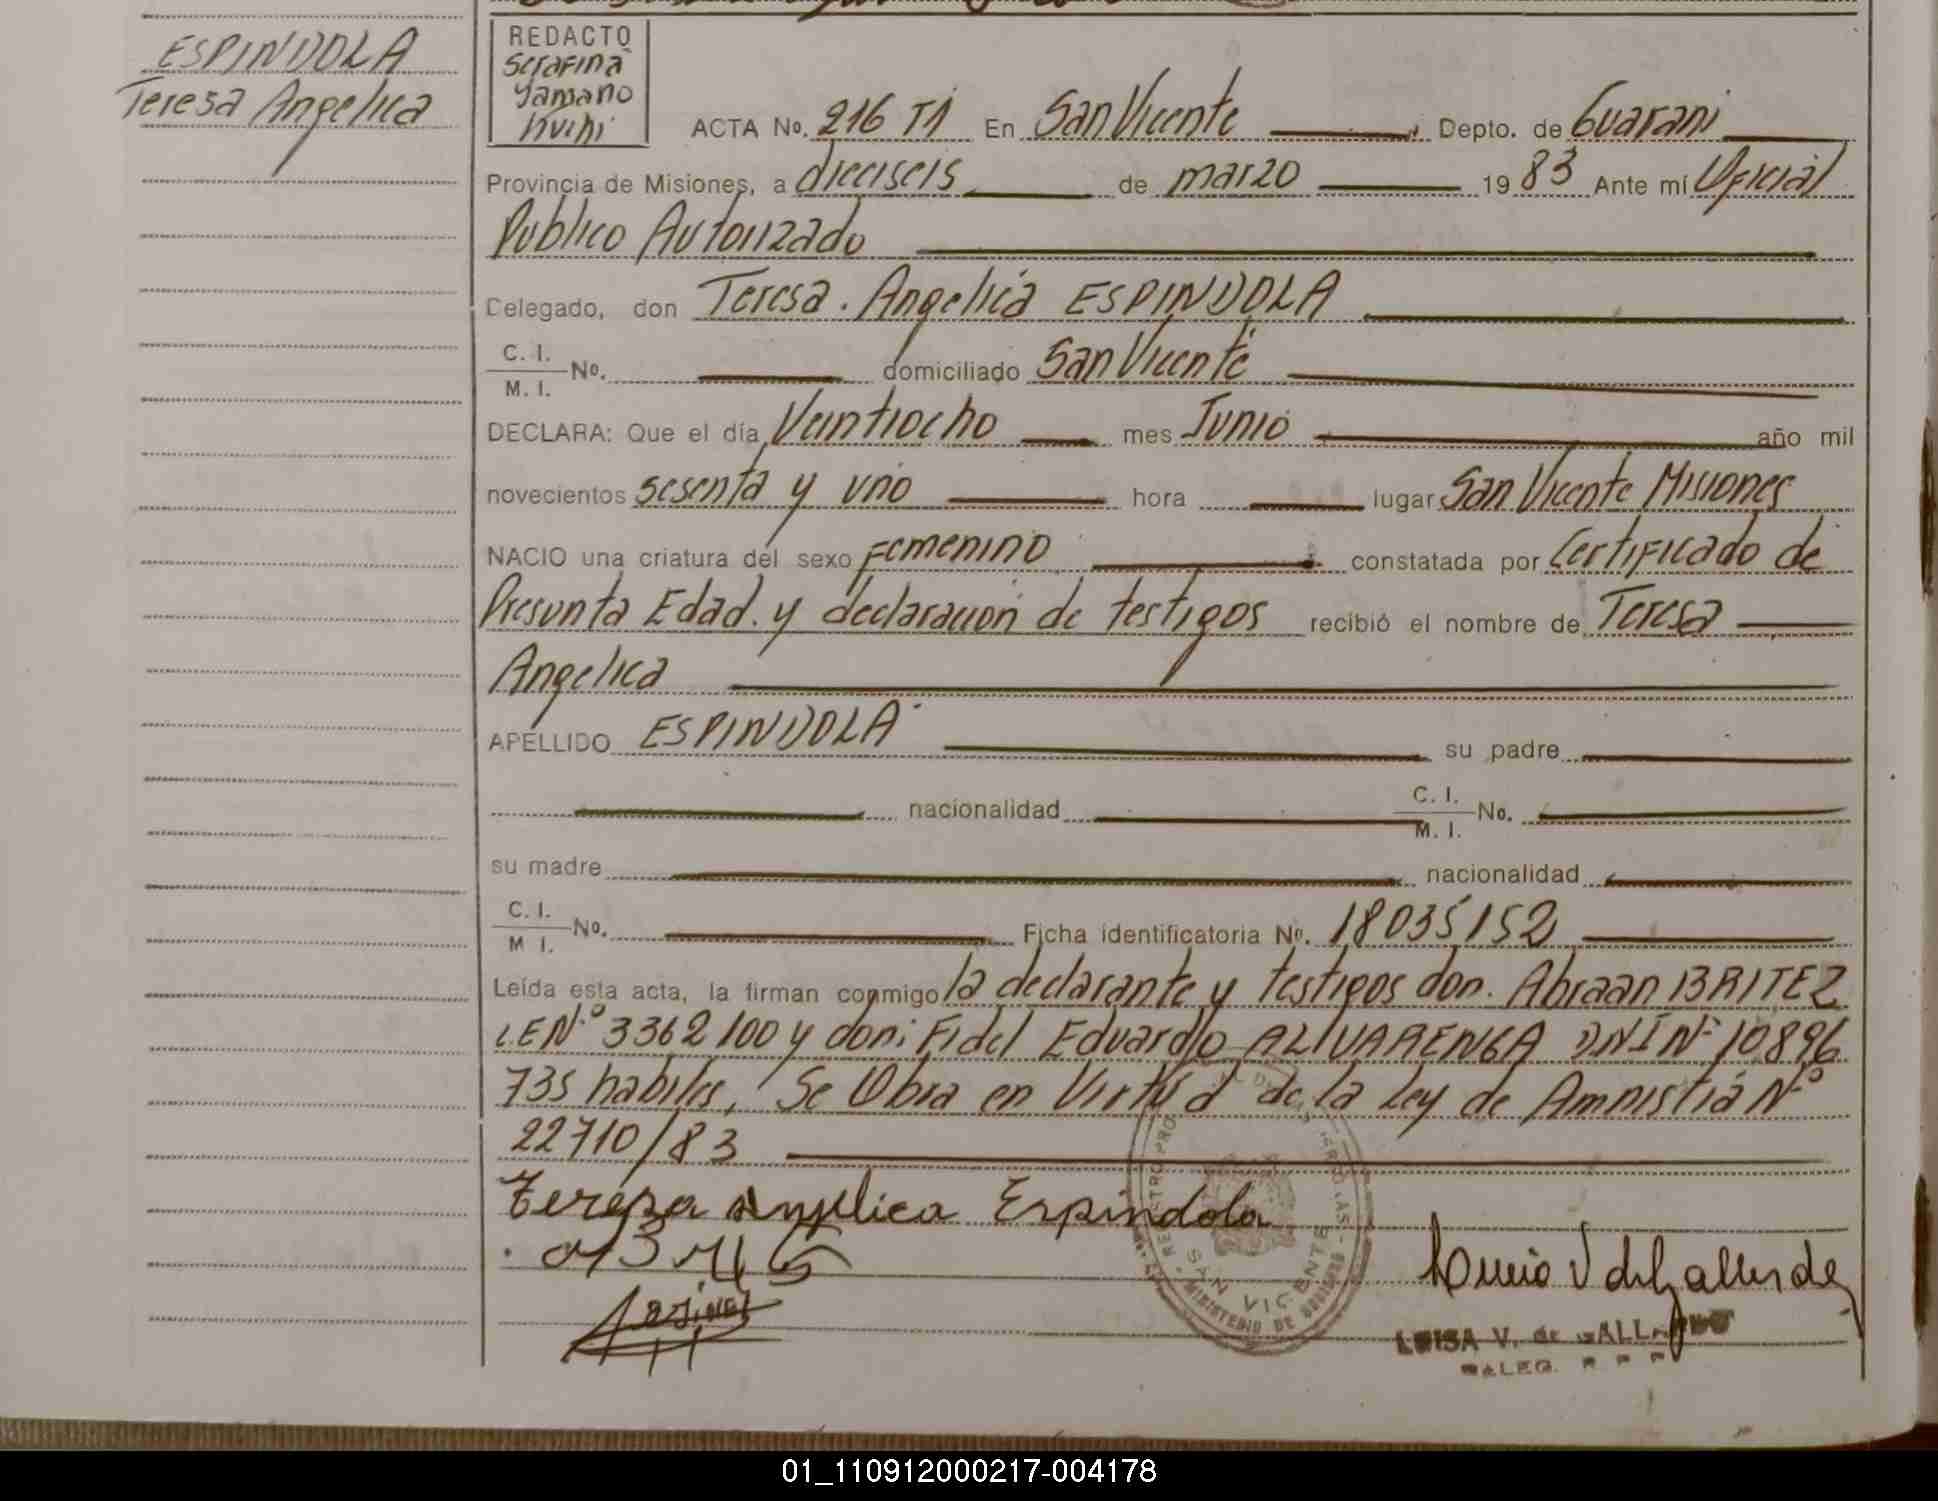 ESPINDOLA
Teresa Angelica
REDACTO
Serafina
Yamano
Kuihi
ACTA No. 216 T1 En San Vicente Depto. de Guarani
Provincia de Misiones, a dieciseis de marzo 1983 Ante mí Oficial
Publico Autorizado
Delegado, don Teresa. Angelica ESPINDOLA
C. I.
M. I. No. domiciliado San Vicente
DECLARA: Que el día Veintiocho mes Junio año mil
novecientos sesenta y uno hora lugar San Vicente Misiones
NACIO una criatura del sexo Femenino constatada por Certificado de
Presunta Edad. y declaracion de testigos recibió el nombre de Teresa
Angelica
APELLIDO ESPINDOLA su padre
nacionalidad C. I.
M. I. No.
su madre nacionalidad
C. I.
M I. No. Ficha identificatoria No. 18035152
Leída esta acta, la firman conmigo la declarante y testigos don. Abraan BRITEZ
L.E Nº 3362100 y don: Fidel Eduardo ALIVARENGA DNI Nº 10896
735 habiles, Se Obra en Virtud de la Ley de Amnistia Nº
22710/83
Teresa Angelica Espindola
SAN VICENTE
MINISTERIO DE GOBIERNO
LUISA V. de GALLARDO
01_110912000217-004178